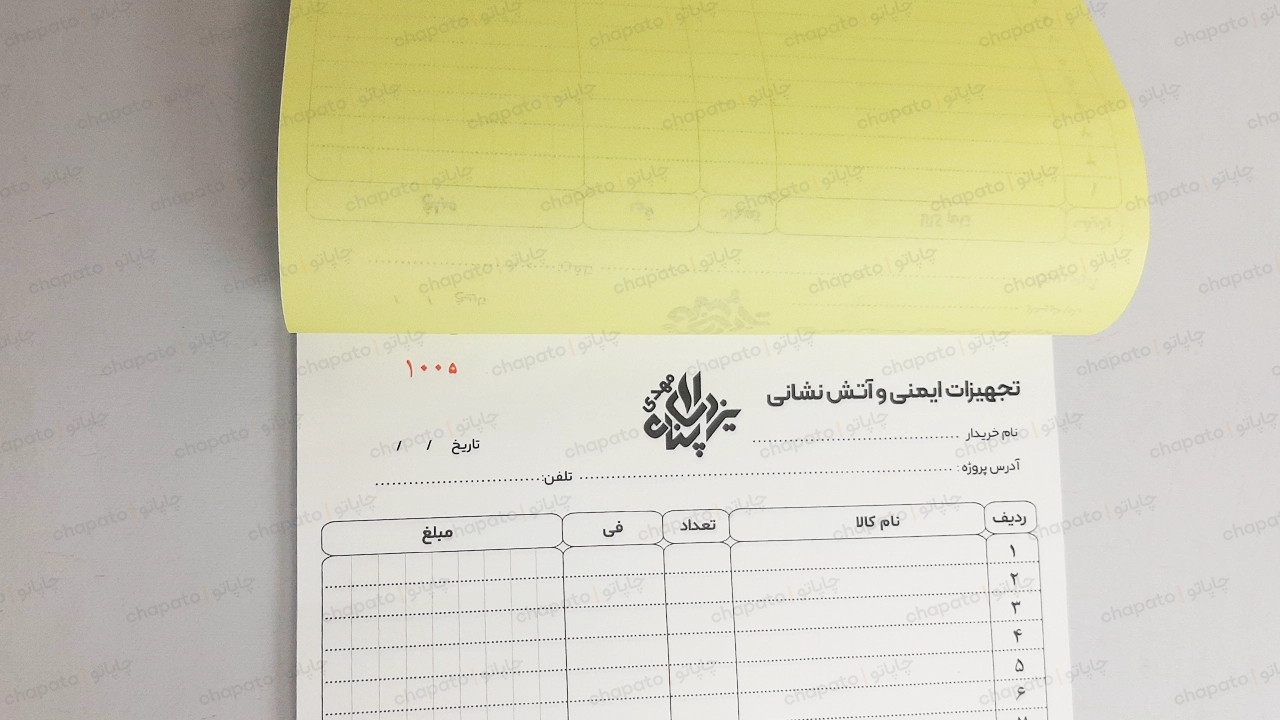 ۱۰۰۵
تجهیزات ایمنی و آتش نشانی
یزدان پناه مهدی
نام خریدار
تاریخ / /
آدرس پروژه: تلفن:
ردیف نام کالا تعداد فی مبلغ
۱
۲
۳
۴
۵
۶
chapato | چاپاتو